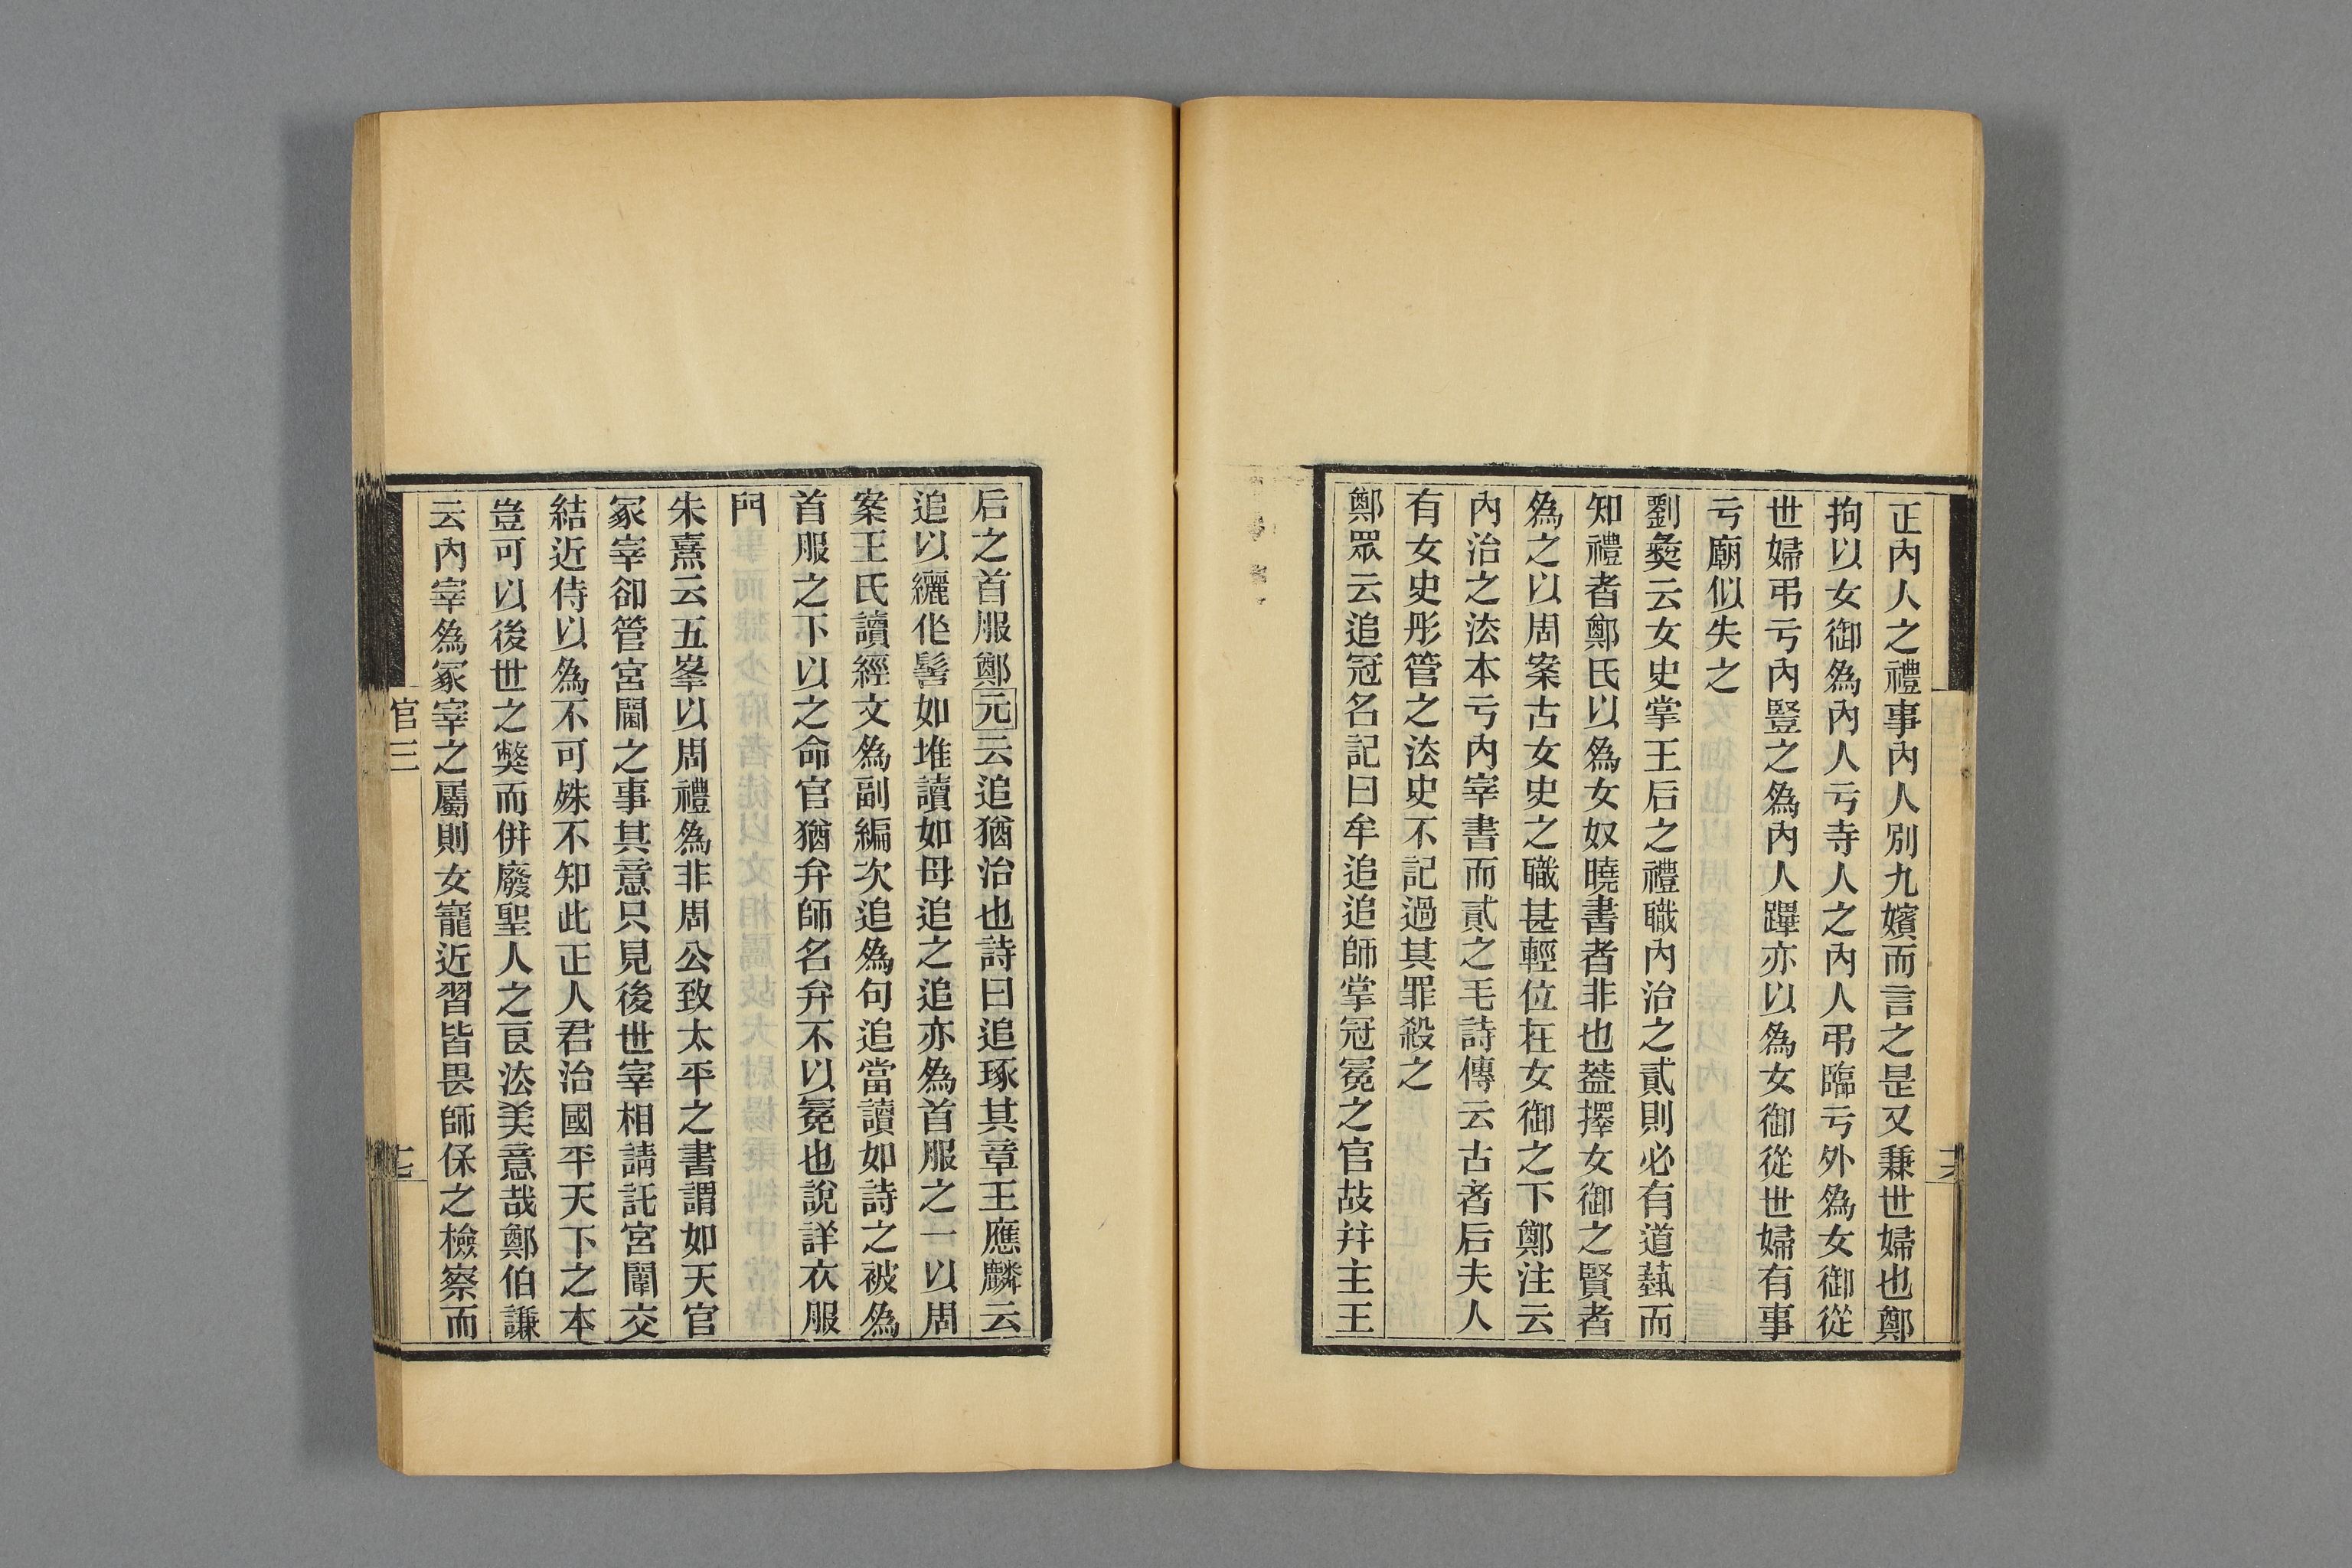 正內人之禮事內人別九嬪而言之是又兼世婦也鄭
拘以女御爲內人亏寺人之內人弔臨亏外爲女御從
世婦弔亏內豎之爲內人蹕亦以爲女御從世婦有事
亏廟似失之
劉彝云女史掌王后之禮職內治之貳則必有道蓺而
知禮者鄭氏以爲女奴曉書者非也蓋擇女御之賢者
爲之以周案古女史之職甚輕位在女御之下鄭注云
內治之法本亏內宰書而貳之毛詩傳云古者后夫人
有女史彤管之法史不記過其罪殺之
鄭眾云追冠名記曰牟追追師掌冠冕之官故幷主王
后之首服鄭元云追猶治也詩曰追琢其章王應麟云
追以纚作髻如堆讀如母追之追亦爲首服之一以周
案王氏讀經文爲副編次追爲句追當讀如詩之被爲
首服之下以之命官猶弁師名弁不以冕也說詳衣服
門
朱熹云五峯以周禮爲非周公致太平之書謂如天官
冢宰卻管宮閫之事其意只見後世宰相請託宮闈交
結近侍以爲不可殊不知此正人君治國平天下之本
豈可以後世之獘而併廢聖人之良法美意哉鄭伯謙
云內宰爲冢宰之屬則女寵近習皆畏師保之檢察而
官三
七